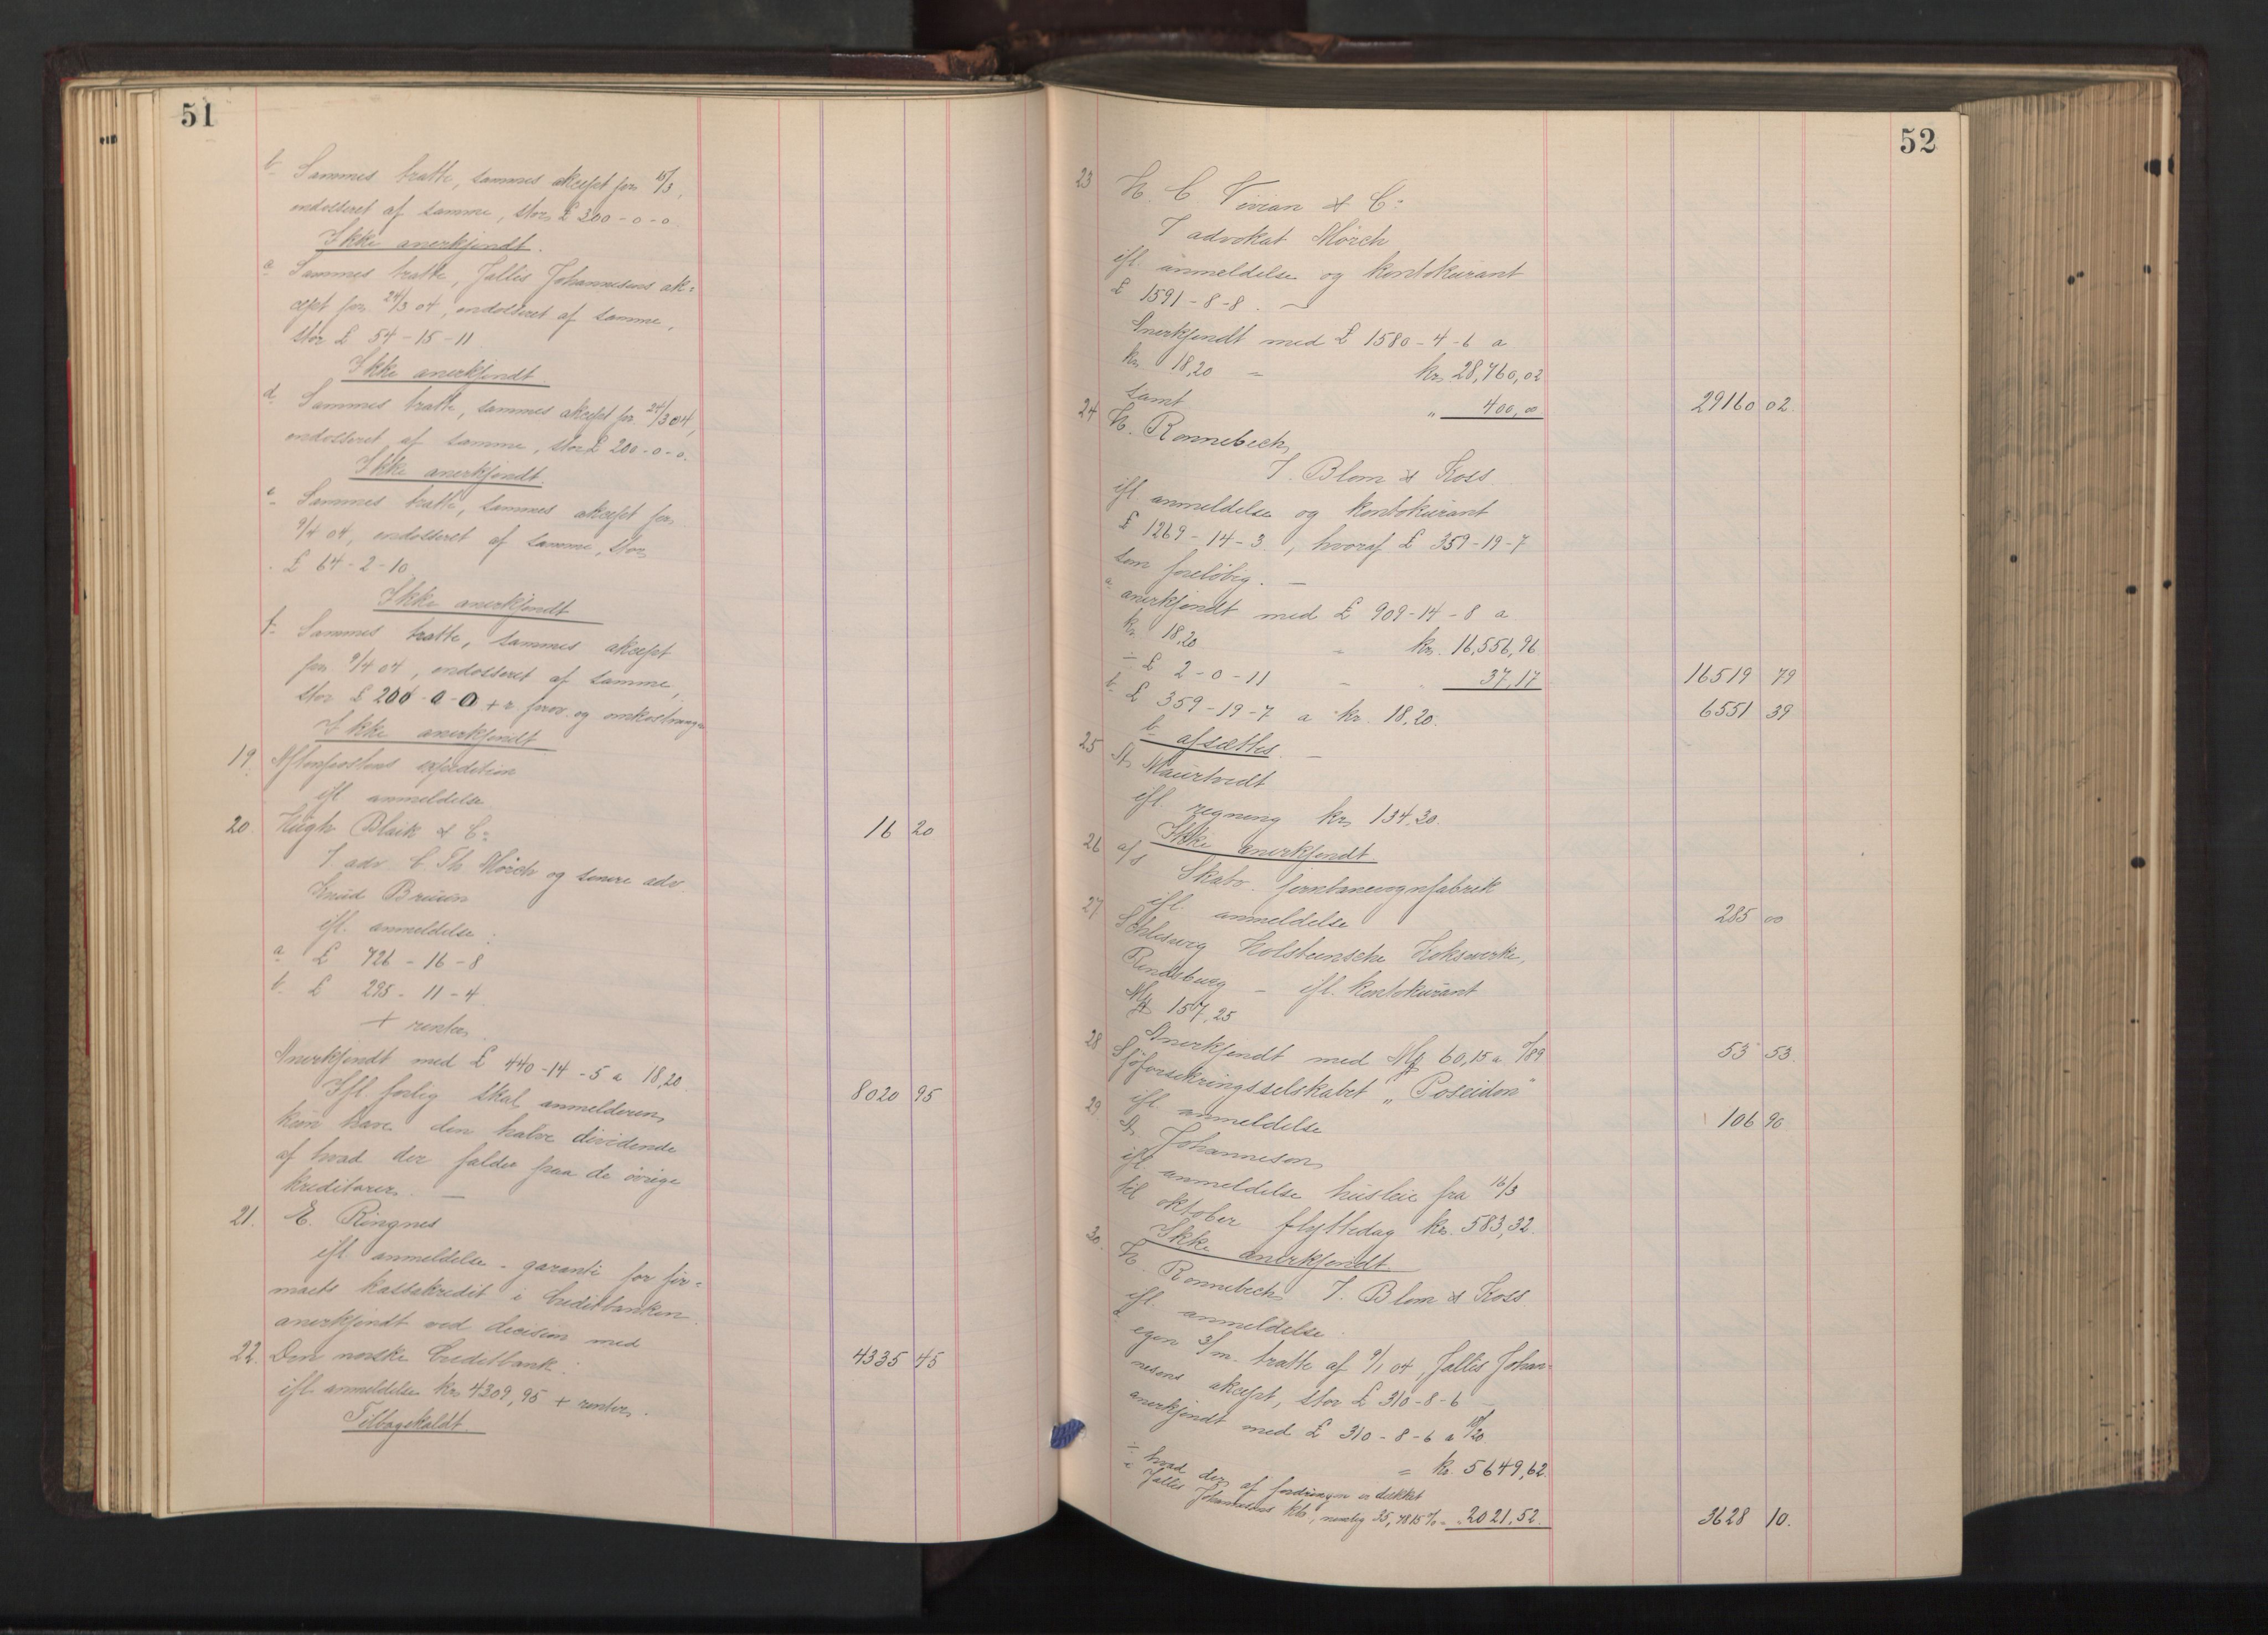 51
b. Sammes tratte, sammes aksept for 15/3,
endosseret af samme, stor £ 300-0-0.
Ikke anerkjendt.
c. Sammes tratte, Jalles Johannesens ak=
cept for 24/3 04, endosseret af samme,
stor £ 54-15-11
Ikke anerkjendt
d. Sammes tratte, sammes aksept for 24/3 04,
endosseret af samme, stor £ 200-0-0.
Ikke anerkjendt.
e. Sammes tratte, sammes aksept for
9/4 04, endosseret af samme, stor
£ 64-2-10
Ikke anerkjendt
f. Sammes tratte, sammes aksept
for 9/4 04, endosseret af samme,
stor £ 200-0-0 + r. prov. og omkostninger
Ikke anerkjendt
19. Aftenpostens expedition
ifl anmeldelse 16 20
20. Hugh Blaik & Co
V. adv. C. Th. Mørch og senere adv.
Knud Bruun
ifl. anmeldelse:
a. £ 726-16-8
b. £ 295-11-4.
+ renter.
Anerkjendt med £ 440-14-5 a 18,20. 8020 95
Ifl. forlig skal anmelderen
kun have den halve dividende
af hvad der falder paa de øvrige
kreditorer. —
21. E. Ringnes
ifl anmeldelse - garanti for fir=
maets kassekredit i Creditbanken.
anerkjendt ved decision med 4335 45
22. Den norske Creditbank:
ifl. anmeldelse kr. 4309,95 + renter.
Tilbagekaldt.
52
23 H. C. Vivian & Co
V advokat Mørch
ifl. anmeldelse og kontokurant
£ 1591-8-8. —
Anerkjendt med £ 1580-4-6 a
kr. 18,20 = kr. 28,760,02
samt " 400,00 29160 02.
24 H. Ronnebeck
V. Blom & Koss
ifl anmeldelse og kontokurant
£ 1269-14-3, hvoraf £ 359-19-7
som foreløbig. —
a. anerkjendt med £ 909-14-8 a
kr. 18,20 = kr. 16,556,96
÷ £ 2-0-11 - 37,17 16519 79
b. £ 359-19-7 a kr. 18,20. 6551 39
b. afsættes. —
25 A. Maurtvedt
ifl. regning kr. 134.30.
Ikke anerkjendt
26 a/s Skabo jernbanevognfabrik
ifl. anmeldelse 285 00
27 Schleswig Holsteinsche Kokswerke,
Rendsburg - ifl. kontokurant
Mk 157,25
Anerkjendt med Mk 60,15 a 0/89 53 53.
28 Sjøforsikringsselskabet "Poseidon"
ifl anmeldelse 106 90
29. A. Johannesen
ifl. anmeldelse husleie fra 16/3
til oktober flyttedag kr. 583,32.
Ikke anerkjendt
30. H. Ronnebeck V. Blom & Koss
ifl. anmeldelse.
a. egen 3/m. tratte af 9/1 04, Jalles Johan=
nesens aksept, stor £ 310-8-6
anerkjendt med £ 310-8-6 a 18/20
= kr. 5649,62.
÷ hvad der af fordringen er dækket
i Jalles Johannesens kb, nemlig 35,7815% = 2021.52. 3628 10.